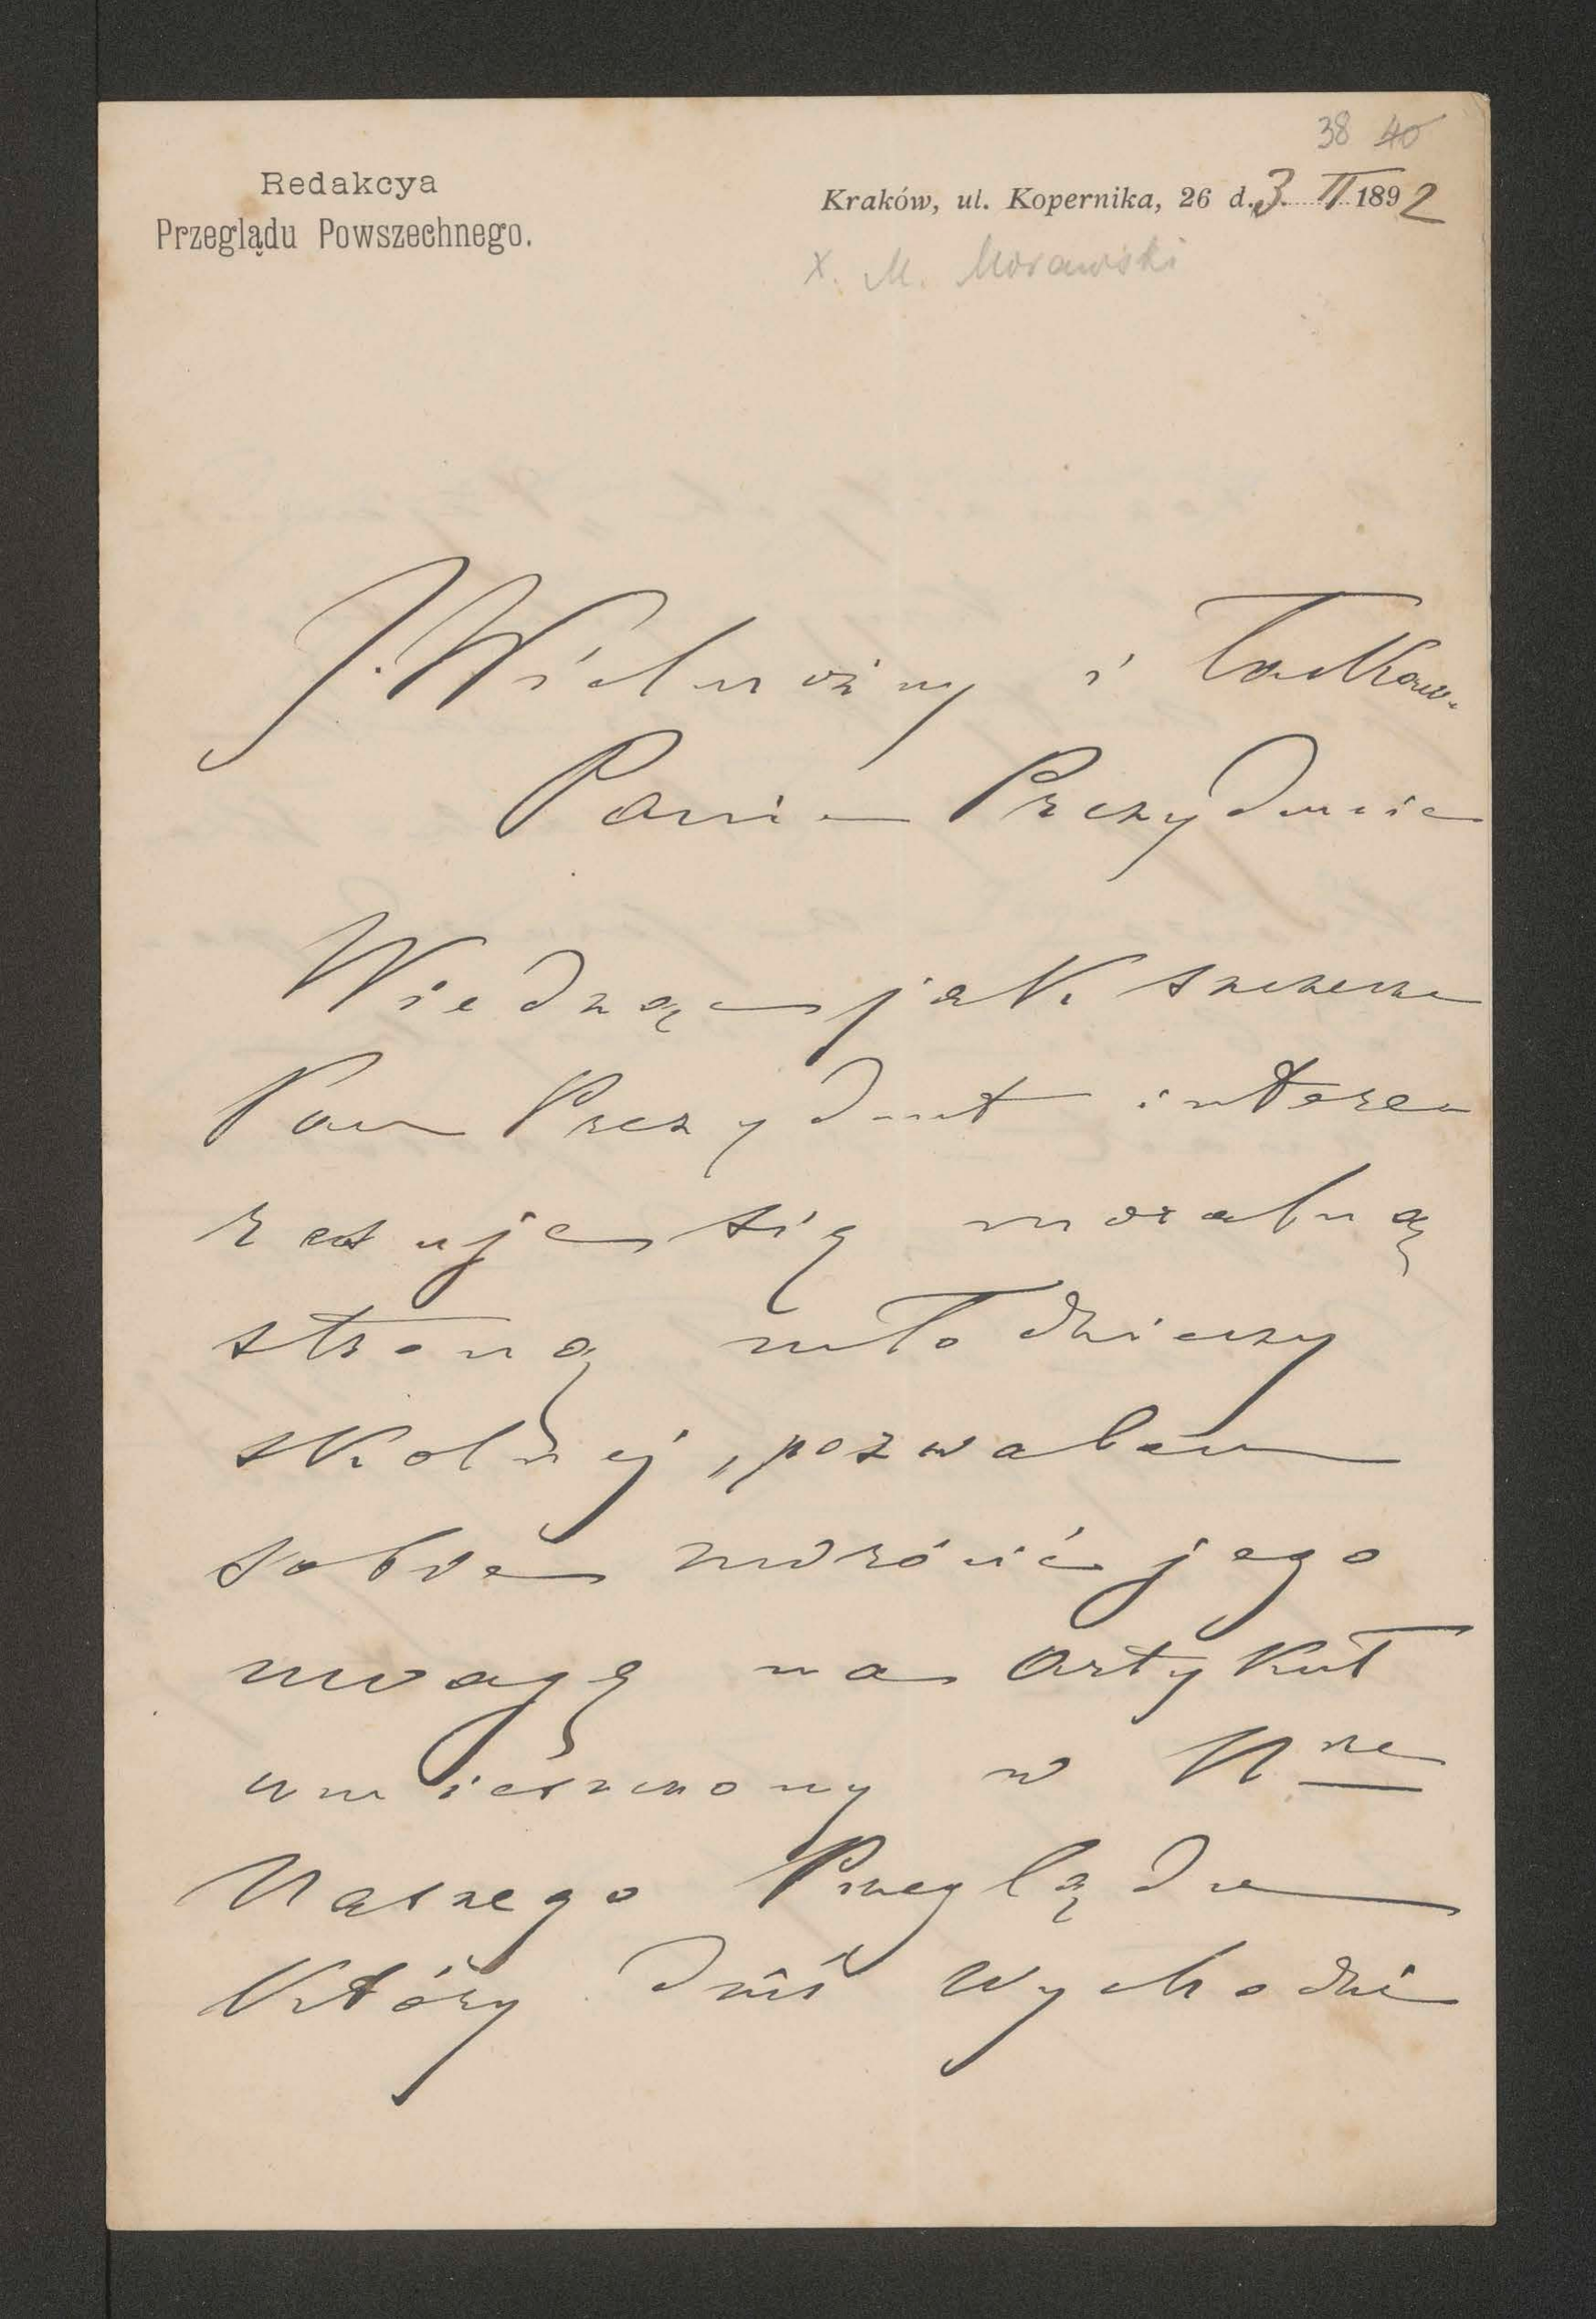 38 40
Redakcya
Przeglądu Powszechnego.
Kraków, ul. Kopernika, 26 d. 3. II 1892
X. M. Morawski
J. Wielmożny i Łaskaw.
Panie Prezydencie
Wiedząc jak szczerze
Pan Prezydent intere
resuje się moralną
stroną młodzieży
szkolnej, pozwalam
sobie zwrócić jego
uwagę na artykuł
umieszczony w Nrze
Naszego Przeglądu
który dziś wychodzi